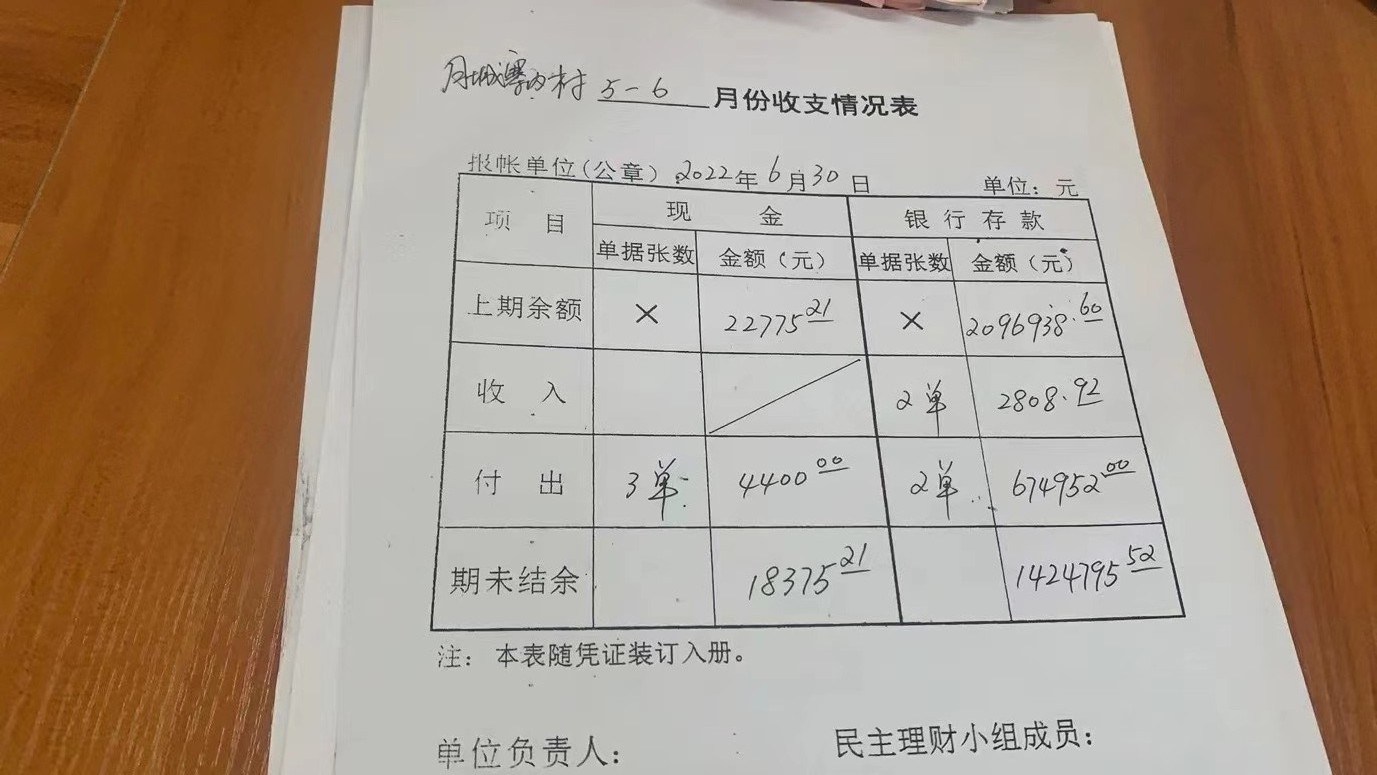 月城寨内村 5-6 月份收支情况表
报帐单位(公章) 2022年6月30日 单位：元
项 目 现 金 银 行 存 款
单据张数 金额（元） 单据张数 金额（元）
上期余额 × 22775.21 × 2096938.60
收 入 2单 2808.92
付 出 3单 4400.00 2单 674952.00
期未结余 18375.21 1424795.52
注：本表随凭证装订入册。
单位负责人： 民主理财小组成员：